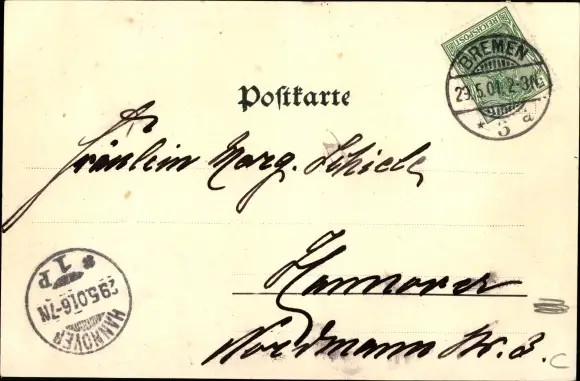 REICHSPOST
BREMEN
29.5.01. 2-3N.
* 5 a
Postkarte
Fräulein Marg. Schiele
Hannover
Nordmann Str. 3.
HANNOVER
29.5.01.6-7N
* 1 P
C